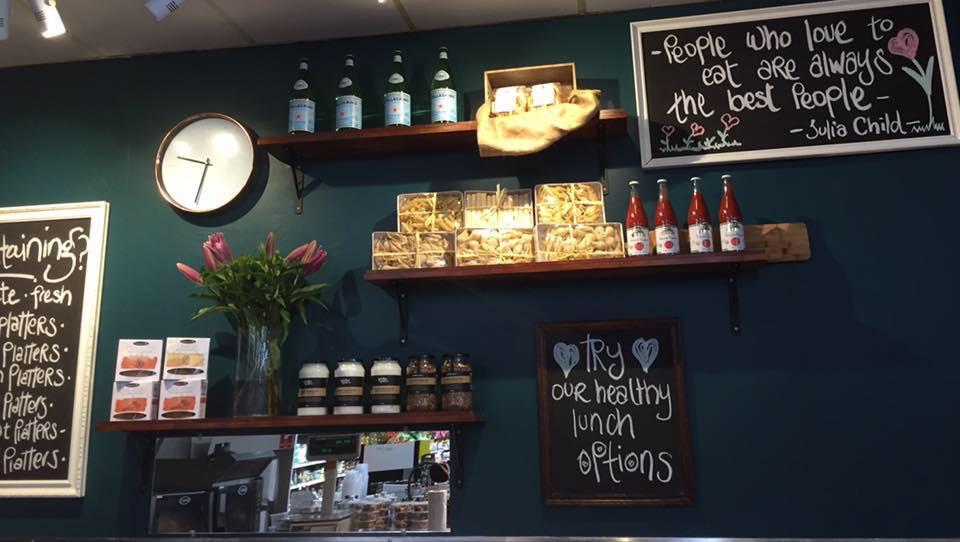 -People who love to
eat are always
the best People-
-Julia Child-
taining?
te · fresh
Platters·
Platters·
Platters·
Platters·
Platters-
Platters·
Try
our healthy
lunch
options